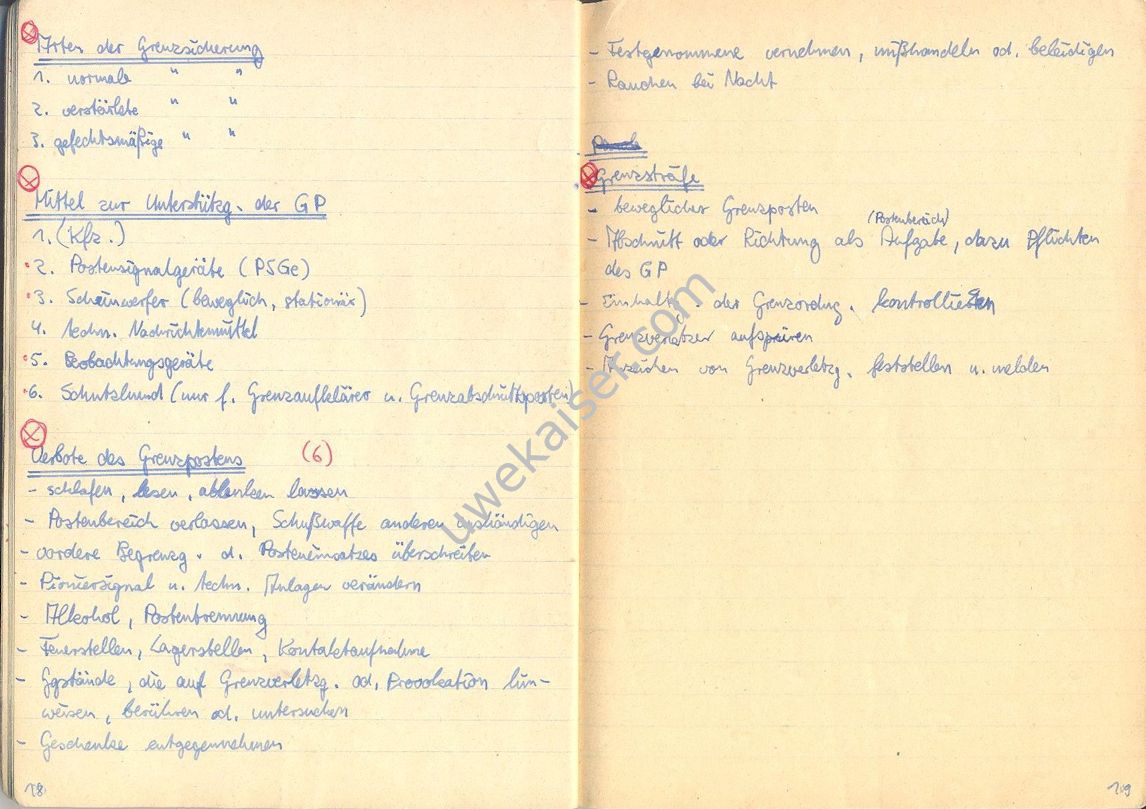 Arten der Grenzsicherung
1. normale " "
2. verstärkte " "
3. gefechtsmäßige " "
Mittel zur Unterstützg. der GP
1. (Kfz.)
2. Postensignalgeräte (PSGe)
3. Scheinwerfer (beweglich, stationär)
4. techn. Nachrichtenmittel
5. Beobachtungsgeräte
6. Schutzhund (nur f. Grenzaufklärer u. Grenzabschnittsposten)
Verbote des Grenzpostens (6)
- schlafen, lesen, ablenken lassen
- Postenbereich verlassen, Schußwaffe anderen aushändigen
- vordere Begrenzg. d. Posteneinsatzes überschreiten
- Pioniersignal u. techn. Anlagen verändern
- Alkohol, Postentrennung
- Feuerstellen, Lagerstellen, Kontaktaufnahme
- Ggstände, die auf Grenzverletzg. od. Provokation hin-
weisen, berühren od. untersuchen
- Geschenke entgegennehmen
18
- Festgenommene vernehmen, mißhandeln od. beleidigen
- Rauchen bei Nacht
Grenzsträfe
- beweglicher Grenzposten
(Postenbereich)
- Abschnitt oder Richtung als Aufgabe, dazu Pflichten
des GP
- Einhaltg. der Grenzordng. kontrollieren
- Grenzverletzer aufspüren
- Anzeichen von Grenzverletzg. feststellen u. melden
19
uwekaiser.com